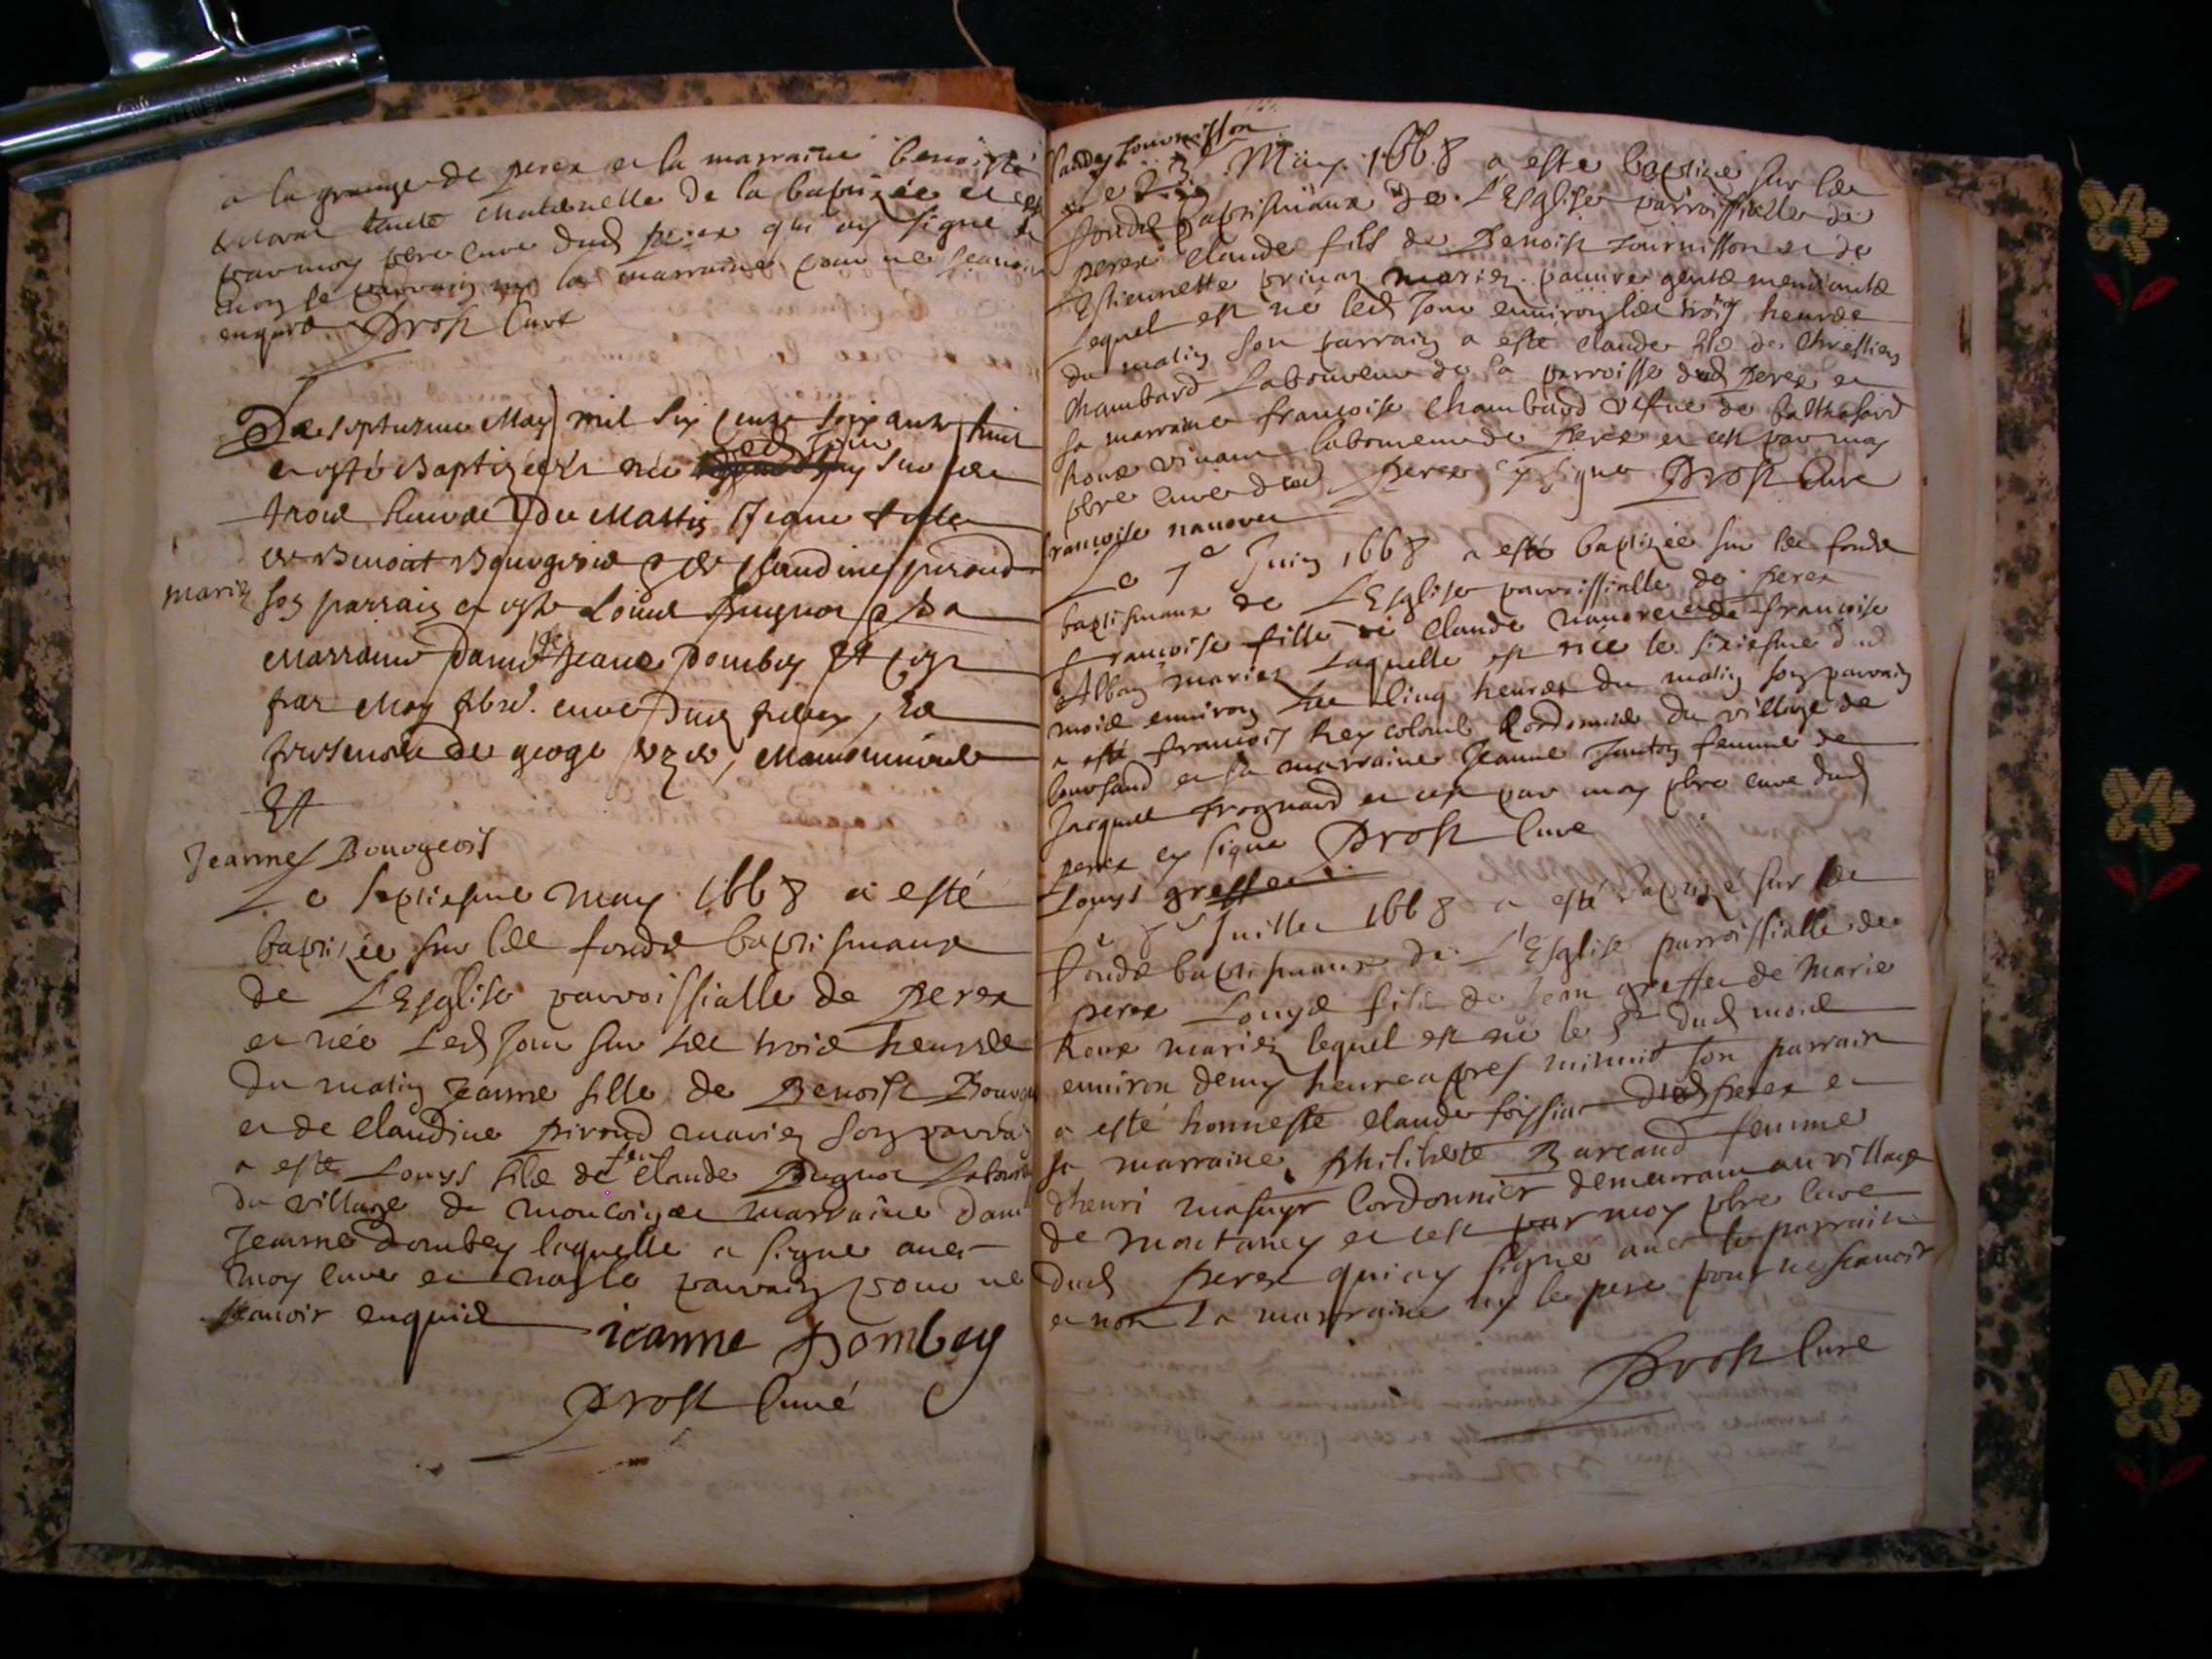 a la grange de perex et la marraine benoiste
tante maternelle de la baptizée et cest
par moy pbre cure dud perex qui ay signe et
non le parrain ny la marraine pour ne scauoir
enquis Prost Curé
Le septiesme May mil six cents soixante huict
a esté Baptizée et née led jour sur les
trois heures du Mattin Jeane fille
de Benoit Bourgeois et de Claudine piroud
mariez son parrain a esté Louis Bugnot et sa
Marraine Dame Jeane Dombey Et cest
par Moy pbre. cure dud perex, En
presence de
Et
Jeanne Bourgeois
Le septiesme may 1668 a esté
baptizée sur les fonds baptismaux
de L'Esglise parroissialle de perex
et née Led Jour sur les trois heures
du matin Jeanne fille de Benoist Bourge
et de Claudine piroud mariez son parrain
a esté Louys fils de feu Claude Bugnot Labour
du village de marraine Dame
Jeanne Dombey laquelle a signe auec
moy cure et non le parrain pour ne
scauoir enquis
ieanne Dombey
Prost Curé
Claude Tournisson
Le 23e May 1668 a este baptizé sur les
fonds baptismaux de L'Esglise parroissialle de
perex Claude fils de Benoist Tournisson et de
Estiennette mariez pauures gents mendiants
Lequel est né led Jour enuiron les trois heures
du matin Son parrain a esté Claude fils de Chrestien
Chambard Laboureur de la parroisse dud perex et
sa marraine francoise Chambard vefue de balthasard
Roux viuant laboureur de perex et cest par moy
pbre cure dud perex cy signe Prost Cure
francoise nanouer
Le 7e Juin 1668 a esté baptizée sur les fonds
baptismaux de L'Esglise parroissialle de perex
francoise fille de Claude et de francoise
Alban mariez Laquelle est née le sixiesme dud
mois enuiron les cinq heures du matin son parrain
a esté francois du village de
et sa marraine Jeanne femme de
Jacques et cest par moy pbre cure dud
perex cy signe Prost Cure
Louys greffet
Le 8e Juillet 1668 a esté baptizé sur les
fonds baptismaux de L'Esglise parroissialle de
perex Louys fils de Jean greffet de Marie
Roux mariez lequel est né le 5e dud mois
enuiron demy heure apres minuit son parrain
a esté honneste Claude foissiat dud perex et
sa marraine philiberte Barcaud femme
d'henri masuyr Cordonnier demeurant au village
de montaney et cest par moy pbre Cure
dud perex qui ay signé auec le parrain
et non La marraine ny le pere pour ne scauoir
Prost Cure